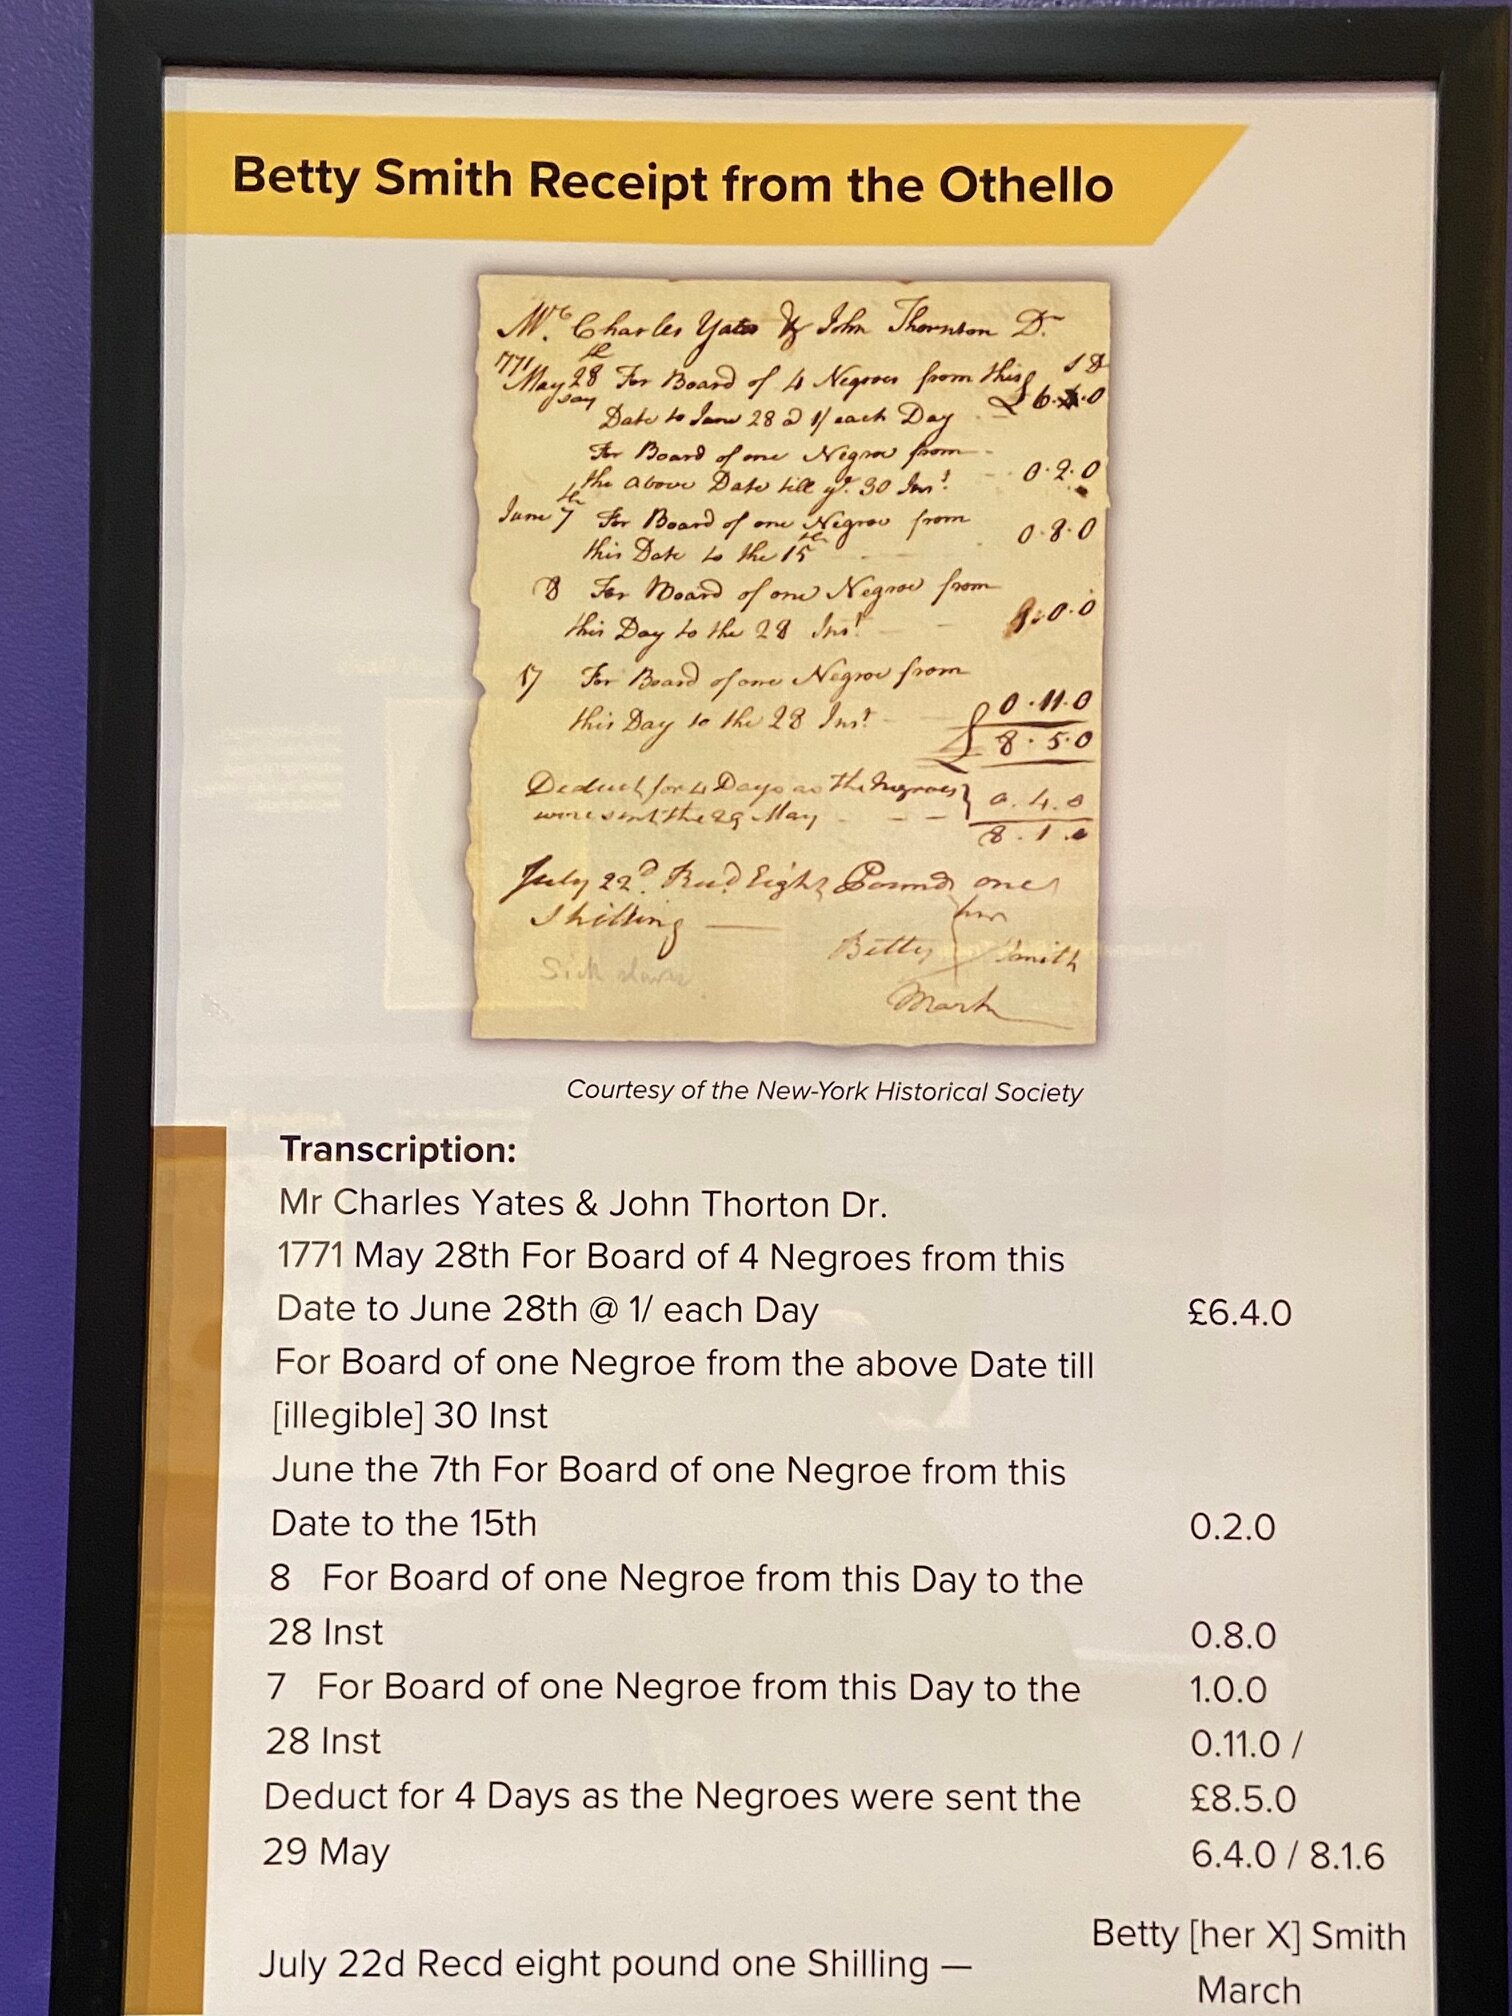 Betty Smith Receipt from the Othello
Mr. Charles Yates & John Thornton Dr.
1771 S D
May 28th For Board of 4 Negroes from this
say Date to June 28 @ 1/ each Day £6.4.0
For Board of one Negroe from
the above Date till ye. 30 Inst. 0.2.0
June 7th For Board of one Negroe from
this Date to the 15th 0.8.0
8 For Board of one Negroe from
this Day to the 28 Inst. 1.0.0
17 For Board of one Negroe from
this Day to the 28 Inst. 0.11.0
£8.5.0
Deduct for 4 Days as the Negroes
were sent the 29 May 0.4.0
8.1.0
July 22d. Recd Eight Pound one
Shilling —
her
Betty X Smith
Mark
Sick slaves
Courtesy of the New-York Historical Society
Transcription:
Mr Charles Yates & John Thorton Dr.
1771 May 28th For Board of 4 Negroes from this
Date to June 28th @ 1/ each Day £6.4.0
For Board of one Negroe from the above Date till
[illegible] 30 Inst
June the 7th For Board of one Negroe from this
Date to the 15th 0.2.0
8 For Board of one Negroe from this Day to the
28 Inst 0.8.0
7 For Board of one Negroe from this Day to the 1.0.0
28 Inst 0.11.0 /
Deduct for 4 Days as the Negroes were sent the £8.5.0
29 May 6.4.0 / 8.1.6
July 22d Recd eight pound one Shilling — Betty [her X] Smith
March